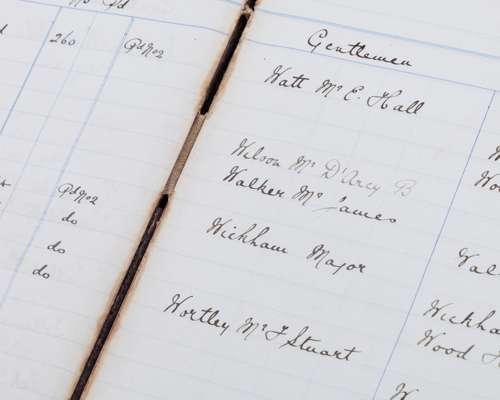 260 Gd No 2
Gd No 2
do
do
do
Gentlemen
Watt Mr E. Hall
Wilson Mr D'Arcy B
Walker Mr James
Wickham Major
Wortley Mr J Stuart
Wal
Wickha
Wood H